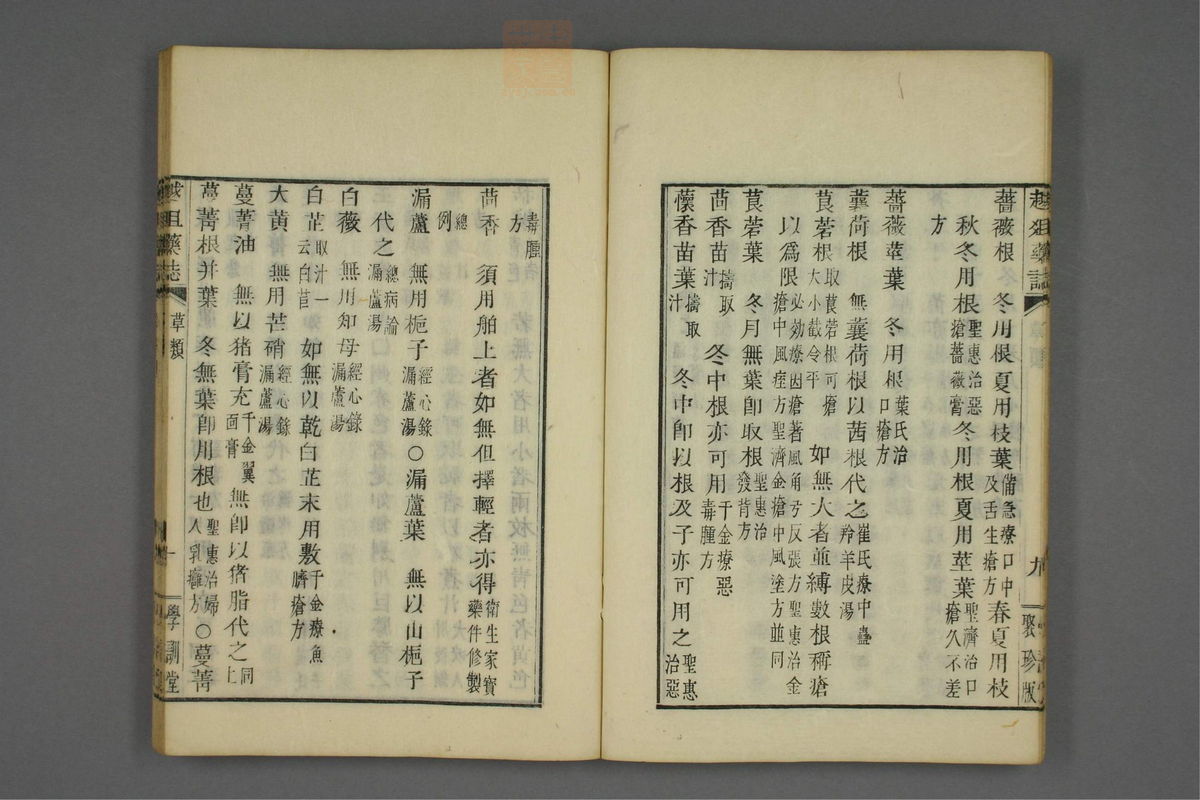 薔薇根 冬用根夏用枝葉備急療口中及舌生瘡方春夏用枝
秋冬用根聖惠治惡瘡薔薇膏冬用根夏用莖葉聖濟治口瘡久不差
方
薔薇莖葉 冬用根葉氏治口瘡方
蘘荷根 無蘘荷根以茜根代之崔氏療中蠱羚羊皮湯
莨菪根取莨菪根可瘡大小截令平 如無大者並縛數根稱瘡
以爲限必効療因瘡著風角弓反張方聖惠治金瘡中風痓方聖濟金瘡中風塗方並同
莨菪葉 冬月無葉卽取根聖惠治發背方
茴香苗擣取汁 冬中根亦可用千金療惡毒腫方
懷香苗葉擣取汁 冬中卽以根及子亦可用之聖惠治惡
越俎藥誌
聚珍版
毒腫方
茴香 須用舶上者如無但擇輕者亦得衛生家寶藥件修製
總例
漏蘆 無用梔子經心錄漏蘆湯○漏蘆葉 無以山梔子
代之總病論漏蘆湯
白薇 無用知母經心錄漏蘆湯
白芷取汁一云白苣 如無以乾白芷末用敷千金療魚臍瘡方
大黃 無用芒硝經心錄漏蘆湯
蔓菁油 無以猪膏充千金翼面膏無卽以猪脂代之同上
蔓菁根并葉 冬無葉卽用根也聖惠治婦人乳癰方○蔓菁
越俎藥誌
草類
一
學訓堂